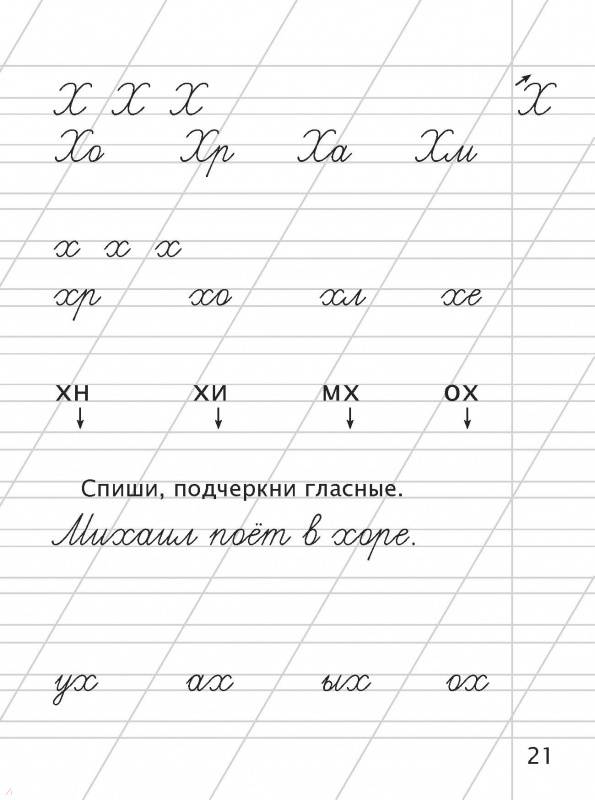 Х Х Х Х
Хо Хр Ха Хм
х х х
хр хо хл хе
хн хи мх ох
Спиши, подчеркни гласные.
Михаил поёт в хоре.
ух ах ых ох
21